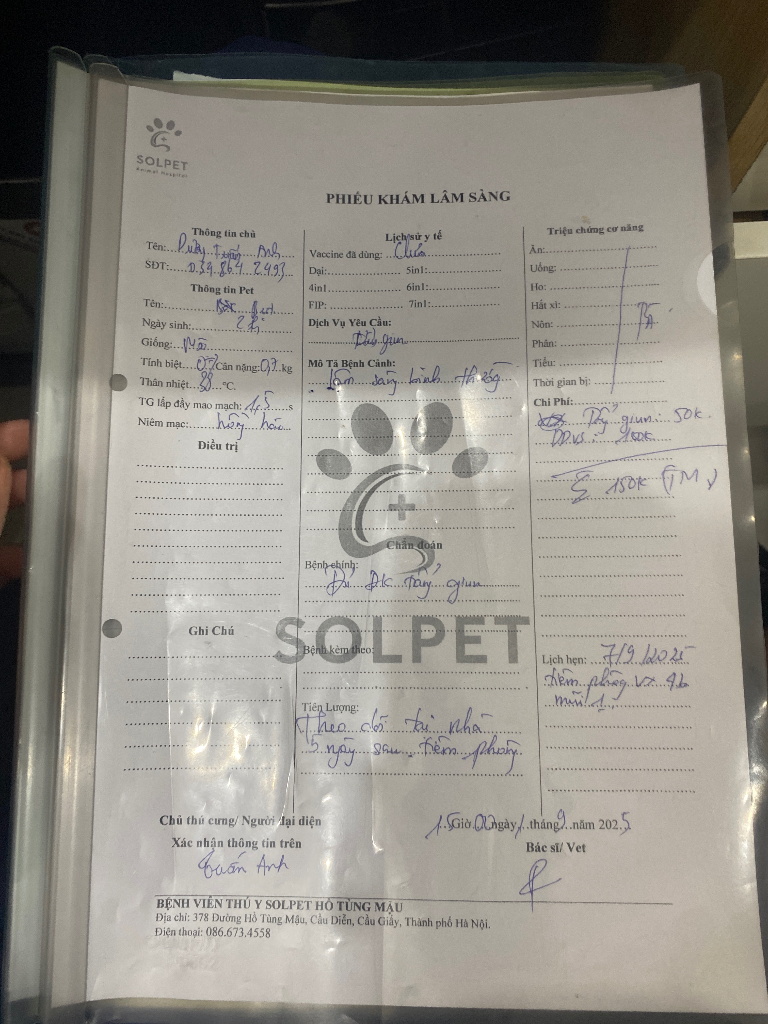 SOLPET
Animal Hospital
PHIẾU KHÁM LÂM SÀNG
Thông tin chủ
Tên: Anh
SĐT: 039.864.2493
Thông tin Pet
Tên:
Ngày sinh:
Giống:
Tính biệt: Cân nặng: 0,7 kg
Thân nhiệt: 38 °C.
TG lấp đầy mao mạch: 1,5 s
Niêm mạc: hồng hào
Điều trị
Ghi Chú
Lịch sử y tế
Vaccine đã dùng: Chưa
Dại: 5in1:
4in1 6in1:
FIP: 7in1:
Dịch Vụ Yêu Cầu:
Tẩy giun
Mô Tả Bệnh Cảnh:
. Lâm sàng bình thường
Chẩn đoán
Bệnh chính:
Đủ ĐK tẩy giun
SOLPET
Bệnh kèm theo:
Tiên Lượng:
Theo dõi tại nhà
5 ngày sau tiêm phòng
Triệu chứng cơ năng
Ăn:
Uống:
Ho:
Hắt xì:
Nôn:
Phân:
Tiểu:
Thời gian bị:
Chi Phí:
Tẩy giun: 50k.
DDVS: 100k
150k (TM)
Lịch hẹn: 7/9/2025
tiêm phòng vx 4b
mũi 1.
Chủ thú cưng/ Người đại diện
Xác nhận thông tin trên
Tuấn Anh
15 Giờ 00 ngày 1 tháng 9 năm 2025
Bác sĩ/ Vet
BỆNH VIỆN THÚ Y SOLPET HỒ TÙNG MẬU
Địa chỉ: 378 Đường Hồ Tùng Mậu, Cầu Diễn, Cầu Giấy, Thành phố Hà Nội.
Điện thoại: 086.673.4558